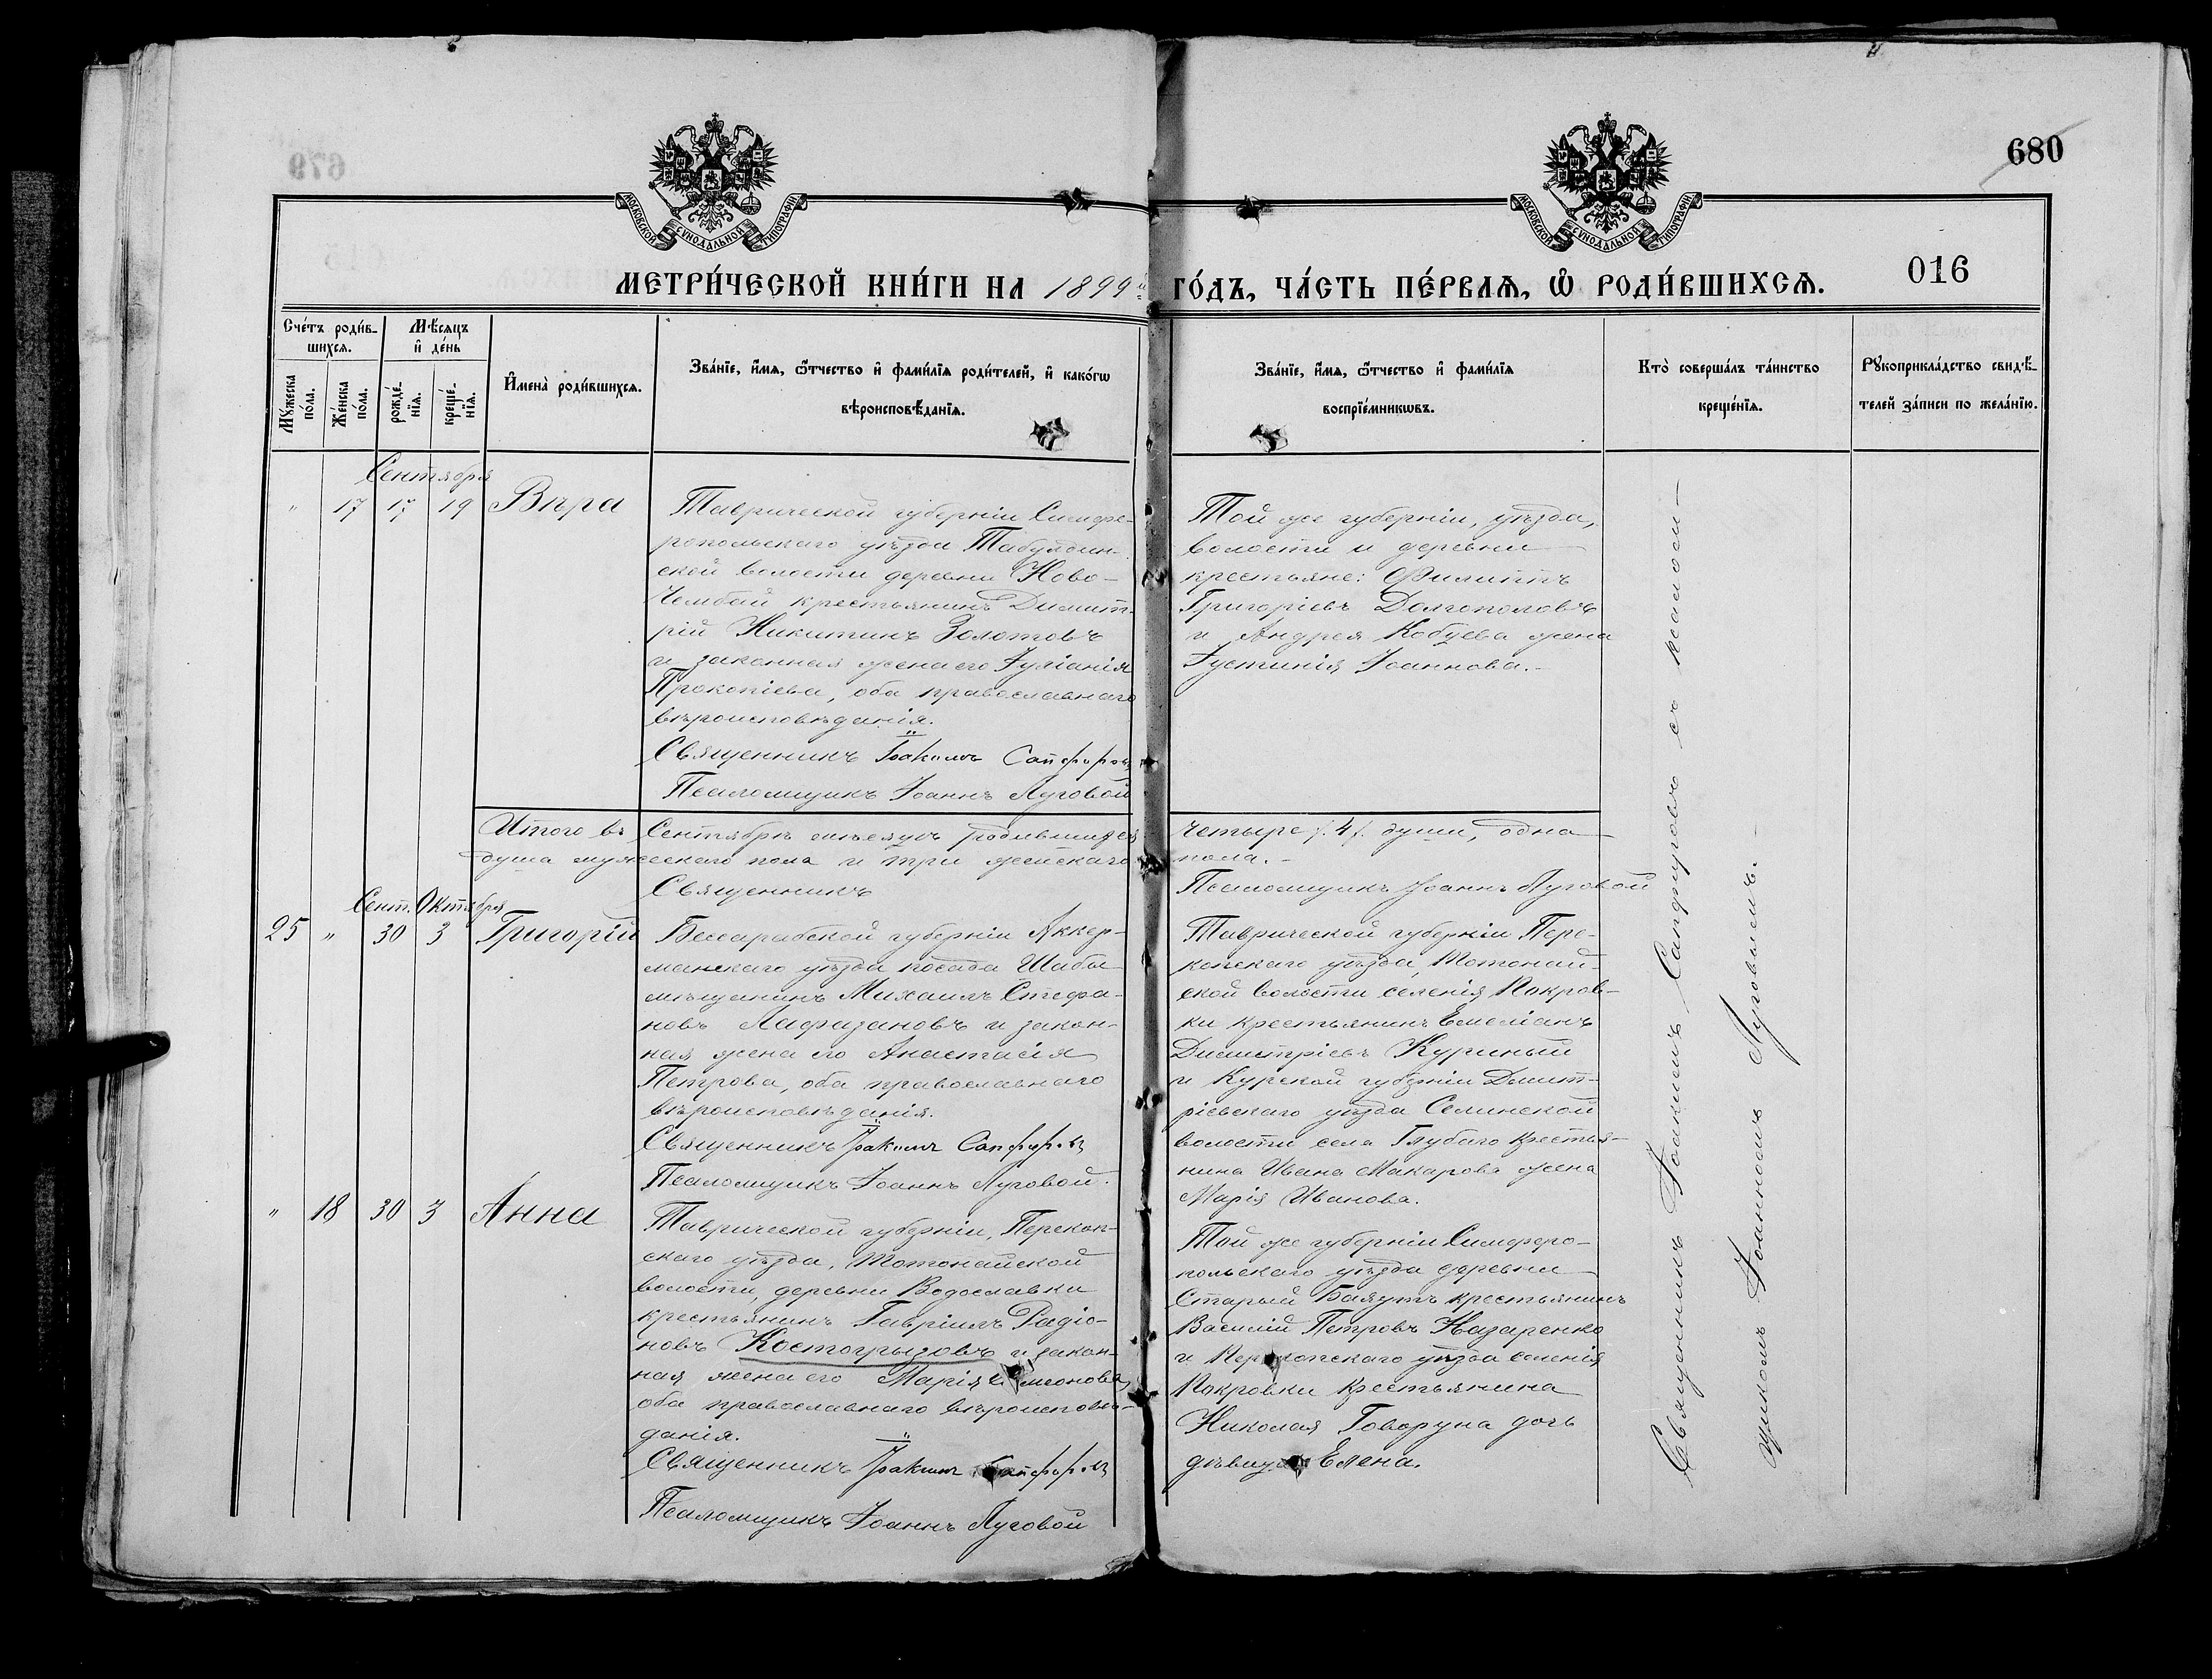 679
680
МОСКОВСКОЙ СѴНОДАЛЬНОЙ ТИПОГРАФІИ
МОСКОВСКОЙ СѴНОДАЛЬНОЙ ТИПОГРАФІИ
016
МЕТРИ́ЧЕСКОЙ КНИ́ГИ НА 1899 й ГО́ДЪ, ЧА́СТЬ ПЕ́РВАѦ, Ѡ҆ РОДИ́ВШИХСѦ.
Сче́тъ роди́в-
шихсѧ.
Мꙋ́жеска
по́ла.
Же́нска
по́ла.
Мѣ́сѧцъ
и҆ де́нь
рожде́-
нїѧ.
креще́-
нїѧ.
И҆мена̀ роди́вшихсѧ.
Зва́нїе, и҆́мѧ, ѻ҆́тчество и҆ фами́лїѧ роди́телей, и҆ како́гѡ
вѣроисповѣ́данїѧ.
Зва́нїе, и҆́мѧ, ѻ҆́тчество и҆ фами́лїѧ
воспрїе́мникѡвъ.
Кто̀ соверша́лъ та́инство
креще́нїѧ.
Рꙋкоприкла́дство свидѣ́-
телей за́писи по жела́нїю.
Сентября
" 17 17 19 Вѣра
Таврической губерніи Симфе-
ропольскаго уѣзда Табулдин-
ской волости деревни Ново-
Чембай крестьянинъ Димит-
рій Никитинъ Золотовъ
и законная жена его Іуліанія
Прокопіева, оба православнаго
вѣроисповѣданія.
Священникъ Іоакимъ Сапфировъ
Псаломщикъ Іоаннъ Луговой
Той же губерніи, уѣзда,
волости и деревни
крестьяне: Филиппъ
Григоріевъ Долгополовъ
и Андрея Кобцева жена
Іустинія Іоаннова.-
Итого въ Сентябрѣ мѣсяцѣ родившихся четыре /. 4 /. души, одна
душа мужескаго пола и три женскаго пола.-
Священникъ Псаломщикъ Іоаннъ Луговой
Сент. Октября
25 " 30 3 Григорій
Бессарабской губерніи Аккер-
манскаго уѣзда посада Шабы
мѣщанинъ Михаилъ Стефа-
новъ Лафазановъ и закон-
ная жена его Анастасія
Петрова, оба православнаго
вѣроисповѣданія.
Священникъ Іоакимъ Сапфировъ
Псаломщикъ Іоаннъ Луговой.
Таврической губерніи Пере-
копскаго уѣзда, Тотонай-
ской волости селенія Покров-
ки крестьянинъ Емеліанъ
Димитріевъ Куриный
и Курской губерніи Димит-
ріевскаго уѣзда Селинской
волости села Глубаго крестья-
нина Ивана Макарова жена
Марія Иванова.
" 18 30 3 Анна
Таврической губерніи, Перекоп-
скаго уѣзда, Тотонайской
волости, деревни Водославки
крестьянинъ Гавріилъ Радіо-
новъ Костогрызовъ и закон-
ная жена его Марія Симеонова
оба православнаго вѣроисповѣ-
данія.
Священникъ Іоакимъ Сапфировъ
Псаломщикъ Іоаннъ Луговой
Той же губерніи Симферо-
польскаго уѣзда деревни
Старый Баяутъ крестьянинъ
Василій Петровъ Назаренко
и Перекопскаго уѣзда селенія
Покровки крестьянина
Николая Говоруна дочь
дѣвица Елена.
Священникъ Іоакимъ Сапфировъ съ псалом-
щикомъ Іоанномъ Луговымъ.-